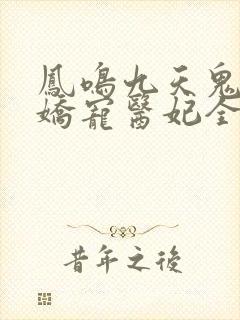 鳳鳴九天鬼
嬌寵醫妃全
昔年之後